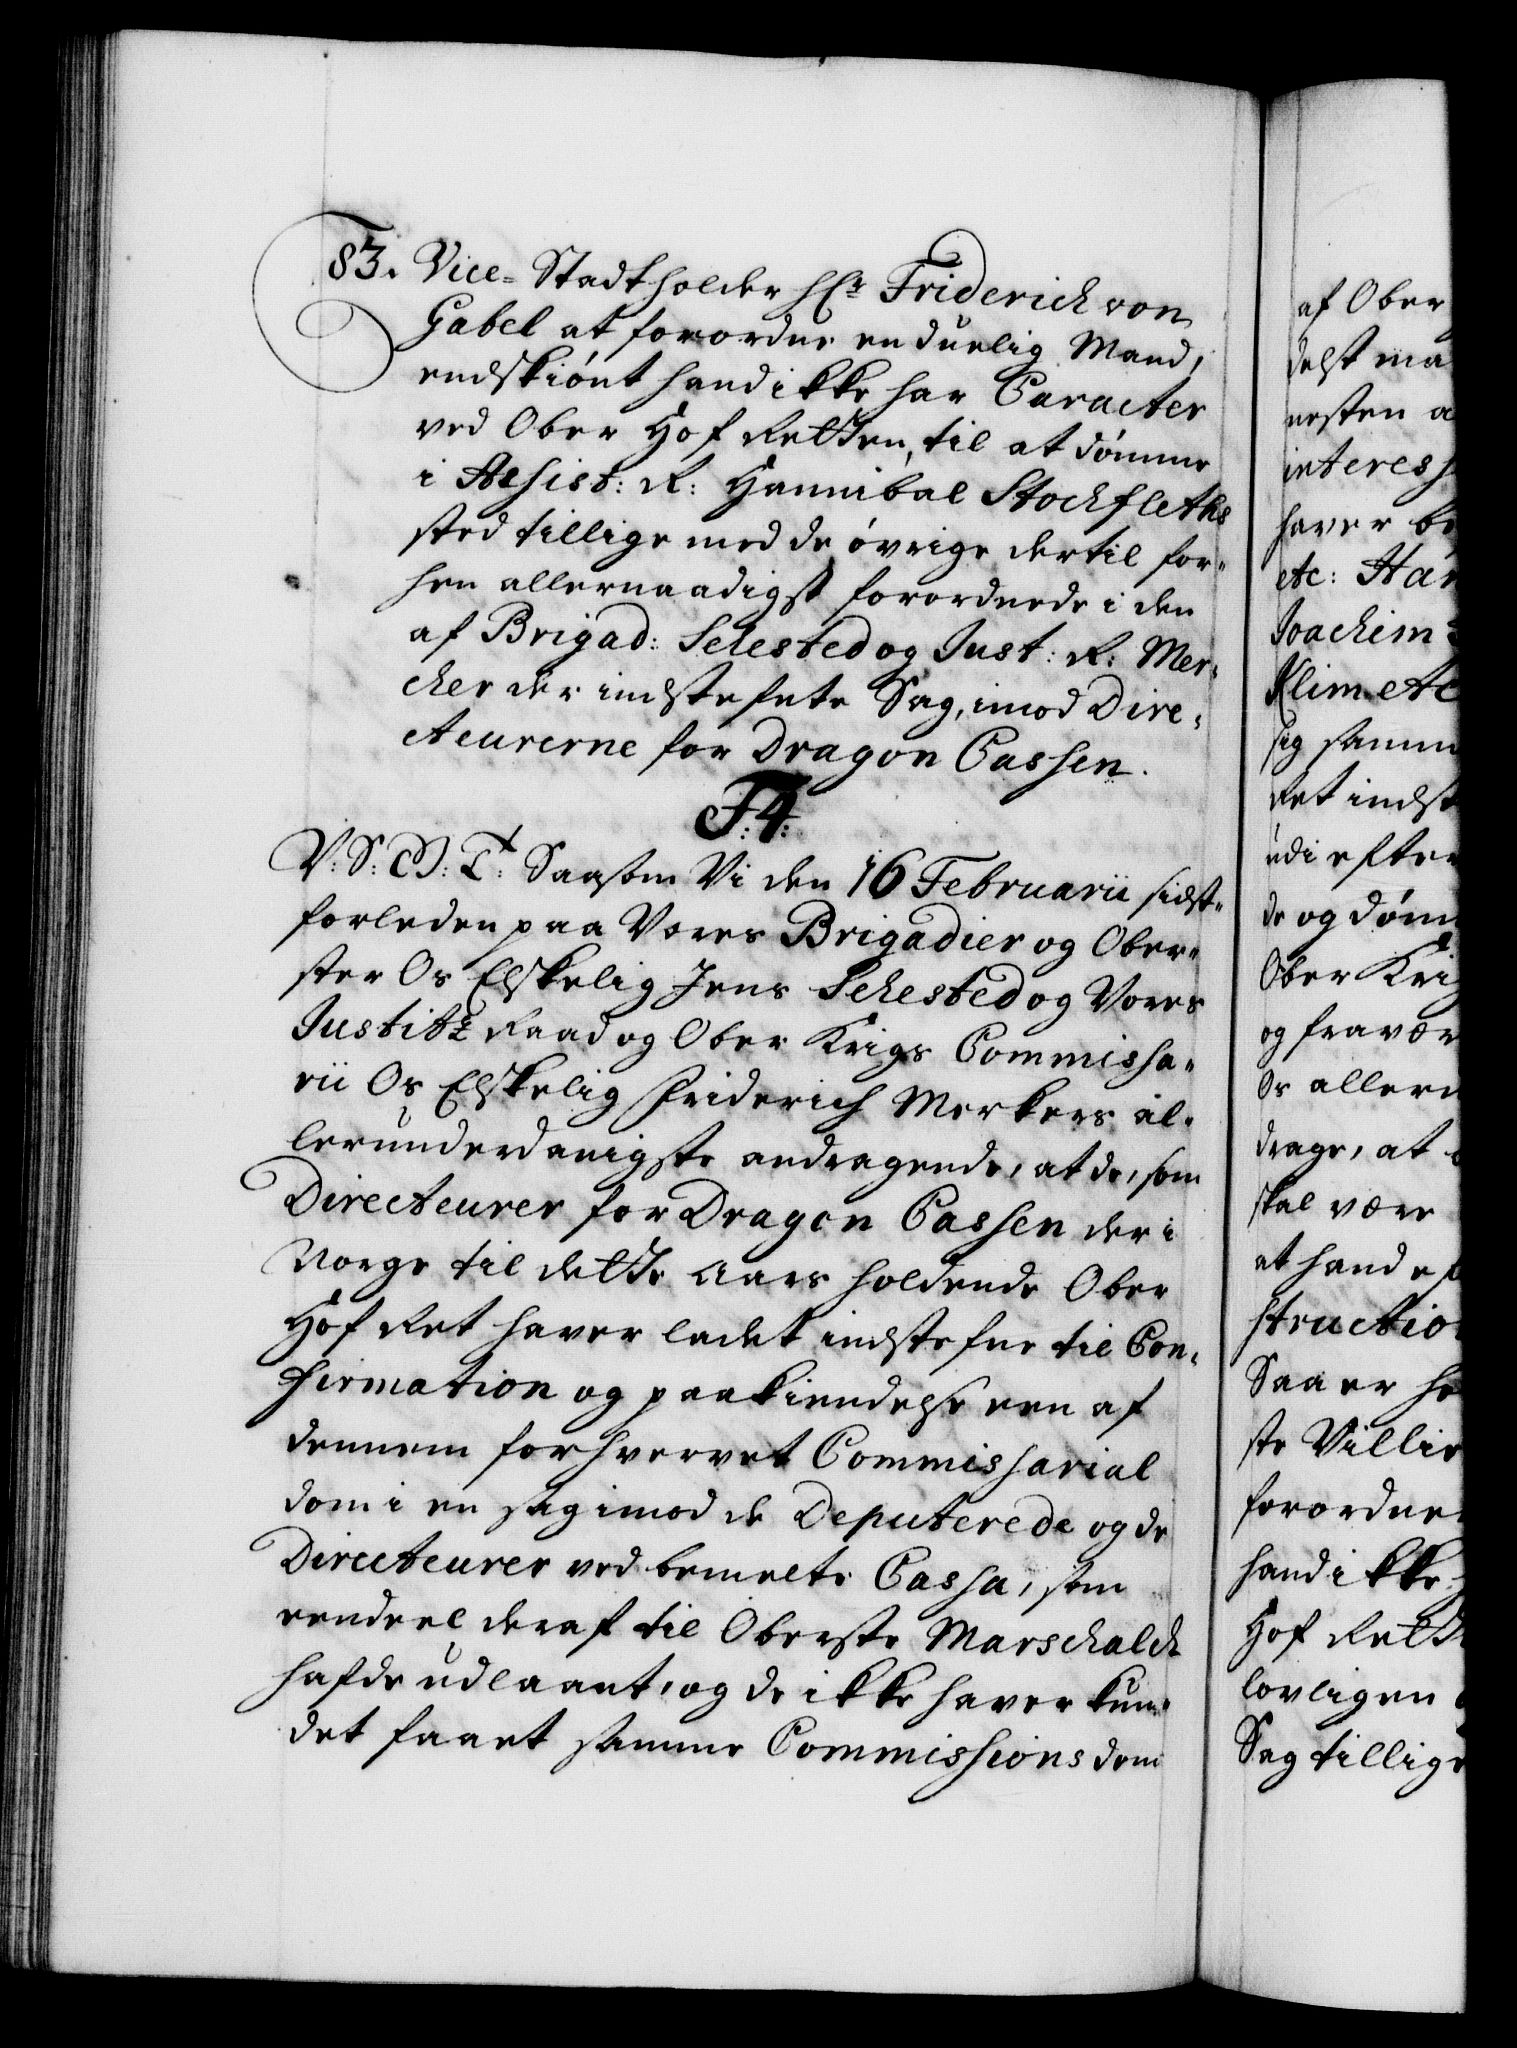 83. Vice-Stadtholder Hr. Friderich von
Gabel at forordne en duelig Mand,
endskiønt hand ikke har Caracter
ved Ober Hof Retten, til at dømme
i Assist: R: Hannibal Stockfleths
sted tillige med de øvrige dertil for-
hen allernaadigst forordnede i den
af Brigad: Sehested og Just: R: Mer-
cker der indstefnte Sag, imod Dire-
cteurerne for Dragon Cassen.
F:4:
V: S: G: T: Saasom Vi den 16 Februarii sidst-
forleden paa Vores Brigadier og Ober-
ster Os Elskelig Jens Sehested og Vores
Justitz Raad og Ober Krigs Commissa-
rii Os Elskelig Friderich Merkers al-
lerunderdanigste andragende, at de, som
Directeurer for Dragon Cassen der i
Norge til dette Aars holdende Ober
Hof Ret haver ladet indstefne til Con-
firmation og paakiendelse een af
dennem forhvervet Commissarial
dom i en sag imod de Deputerede og de
Directeurer ved bemelte Cassa, som
eendeel deraf til Oberste Marschalch
hafde udlaant, og de ikke haver kun-
det faaet samme Commissions dom
af Ober
delst ma
nesten a
interess
haver be
etc: Han
Joachim
Klim etc
sig samm
Ret indst
udi efter
de og døm
Ober Krig
og fravær
Os allern
drage, at
skal være
at hand ef
structio
Saa er he
ste Villie
forordne
hand ikke
Hof Rett
lovligen
Sag tillige